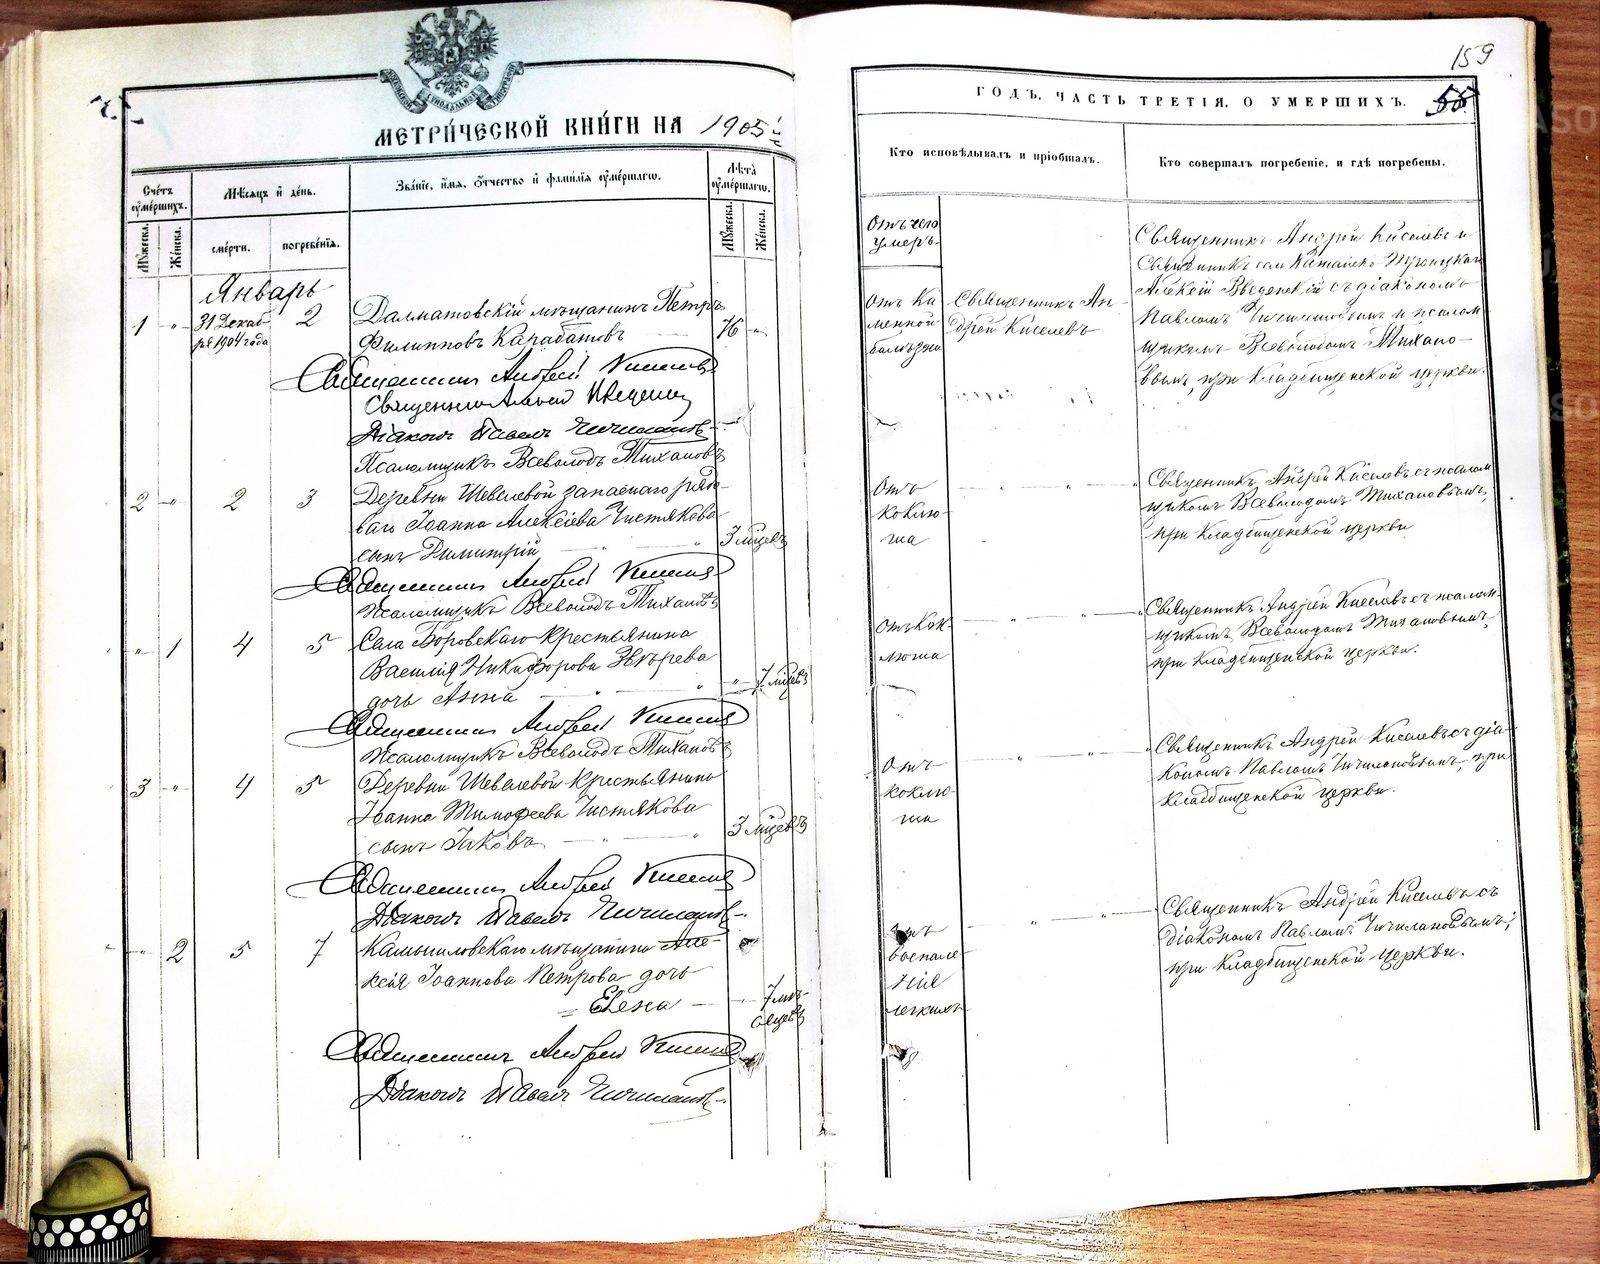 МЕТРИ́ЧЕСКОЙ КНИ́ГИ НА 1905й
Сче́тъ ᲂу҆ме́ршихъ.
Мѣ́сяцъ и҆ де́нь.
Зва́нїе, и҆́мѧ, ѻ҆́тчество и҆ фами́лїѧ ᲂу҆ме́ршагѡ.
Лѣ́та ᲂу҆ме́ршагѡ.
Му́жеска.
Же́нска.
сме́рти.
погребе́нїѧ.
Му́жеска.
Же́нска.
Январь
1 - " - 31 Декаб- 2 Далматовскій мѣщанинъ Петръ
ря 1904 года Филипповъ Карабатовъ 76 "
Священникъ Андрей Киселевъ
Священникъ Алексій Введенскій
Діаконъ Павелъ Чичиланов-
Псаломщикъ Всеволодъ Тихановъ
2 - " - 2 3 Деревни Шевелевой запаснаго рядо-
ваго Іоанна Алексіева Чистякова
сынъ Димитрій " " 3 мѣцевъ
Священникъ Андрей Киселевъ
Псаломщикъ Всеволодъ Тихановъ
- " - 1 4 5 Села Боровскаго крестьянина
Василія Никифорова Звѣрева
дочь Анна " " - " - 7 мѣцевъ
Священникъ Андрей Киселевъ
Псаломщикъ Всеволодъ Тихановъ
3 - " - 4 5 Деревни Шевелевой крестьянина
Іоанна Тимофеева Чистякова
сынъ Іаковъ " " 3 мѣцевъ
Священникъ Андрей Киселевъ
Діаконъ Павелъ Чичиланов-
- " - 2 5 7 Камышловскаго мѣщанина Але-
ксія Іоаннова Петрова дочь
Елена 7 мѣ-
сяцевъ
Священникъ Андрей Киселевъ
Діаконъ Павелъ Чичиланов-
159
ГОДЪ, ЧАСТЬ ТРЕТІЯ, О УМЕРШИХЪ.
55
Кто исповѣдывалъ и пріобщалъ.
Кто совершалъ погребеніе, и гдѣ погребены.
Отъ чего
умеръ.
Отъ ка-
менной
болѣзни
Священникъ Ан-
дрей Киселевъ
Священникъ Андрей Киселевъ и
Священникъ села Катайско-Троицкаго
Алексій Введенскій съ діакономъ
Павломъ Чичилановымъ и псалом
щикомъ Всеволодомъ Тихано-
вымъ, при кладбищенской церкви.
Отъ
коклю-
ша
" "
Священникъ Андрей Киселевъ съ псалом
щикомъ Всеволодомъ Тихановымъ,
при кладбищенской церкви
Отъ кок-
люша
" "
Священникъ Андрей Киселевъ съ псалом-
щикомъ Всеволодомъ Тихановымъ,
при кладбищенской церкви.
Отъ
коклю-
ша
" "
Священникъ Андрей Киселевъ съ діа-
кономъ Павломъ Чичилановымъ, при
кладбищенской церкви.
Отъ
воспале-
нія
легкихъ
" "
Священникъ Андрей Киселевъ съ
діакономъ Павломъ Чичилановымъ,
при кладбищенской церкви.